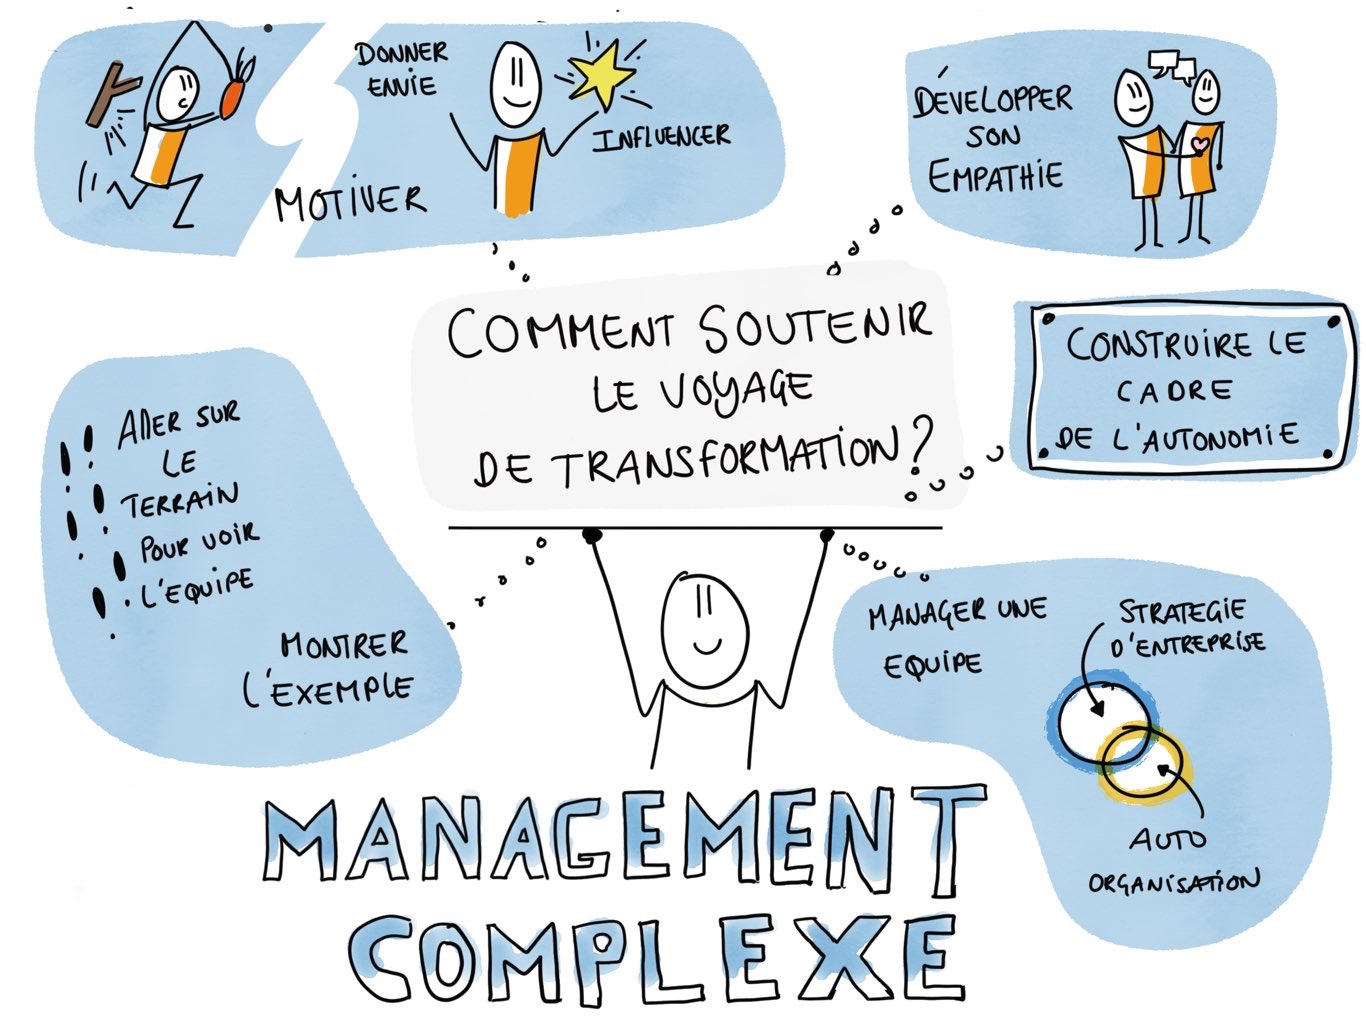 DONNER
ENVIE
INFLUENCER
MOTIVER
DÉVELOPPER
SON
EMPATHIE
COMMENT SOUTENIR
LE VOYAGE
DE TRANSFORMATION?
CONSTRUIRE LE
CADRE
DE L'AUTONOMIE
ALLER SUR
LE
TERRAIN
POUR VOIR
L'EQUIPE
MONTRER
L'EXEMPLE
MANAGER UNE
EQUIPE
STRATEGIE
D'ENTREPRISE
AUTO
ORGANISATION
MANAGEMENT
COMPLEXE